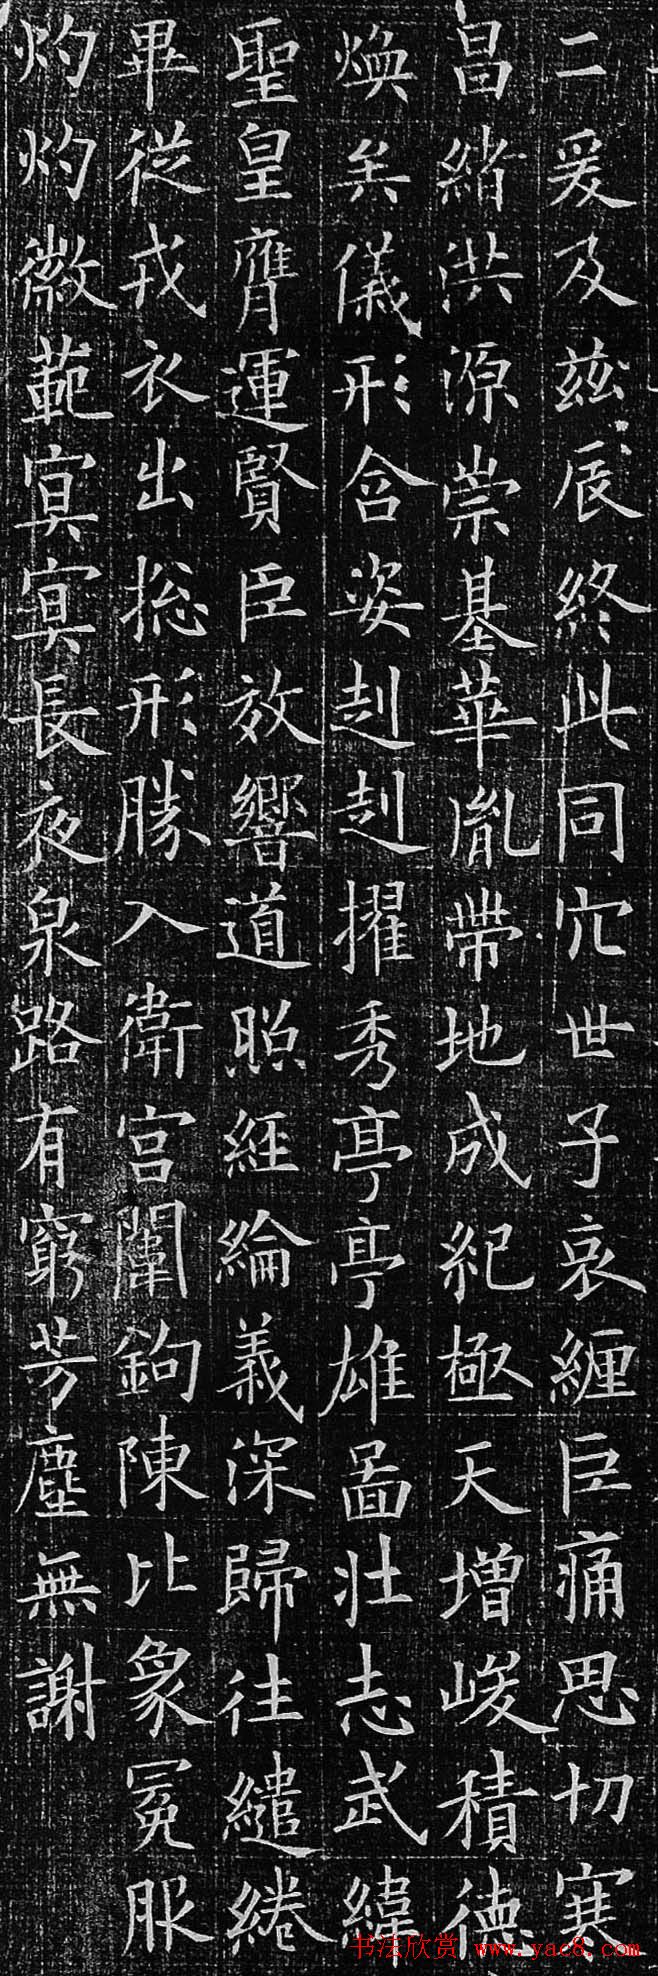 二爰及茲辰終此同穴世子哀纏巨痛思切寒
昌緒洪源崇基華胤帶地成紀極天增峻積德
煥矣儀形含姿赳赳擢秀亭亭雄啚壯志武緯
聖皇膺運賢臣效響道照經綸義深歸往繾綣
畢從戎衣出捴形勝入衛宮闈鉤陳比象冕服
灼灼徽範㝠㝠長夜泉路有窮芳塵無謝
书法欣赏 www.yac8.com